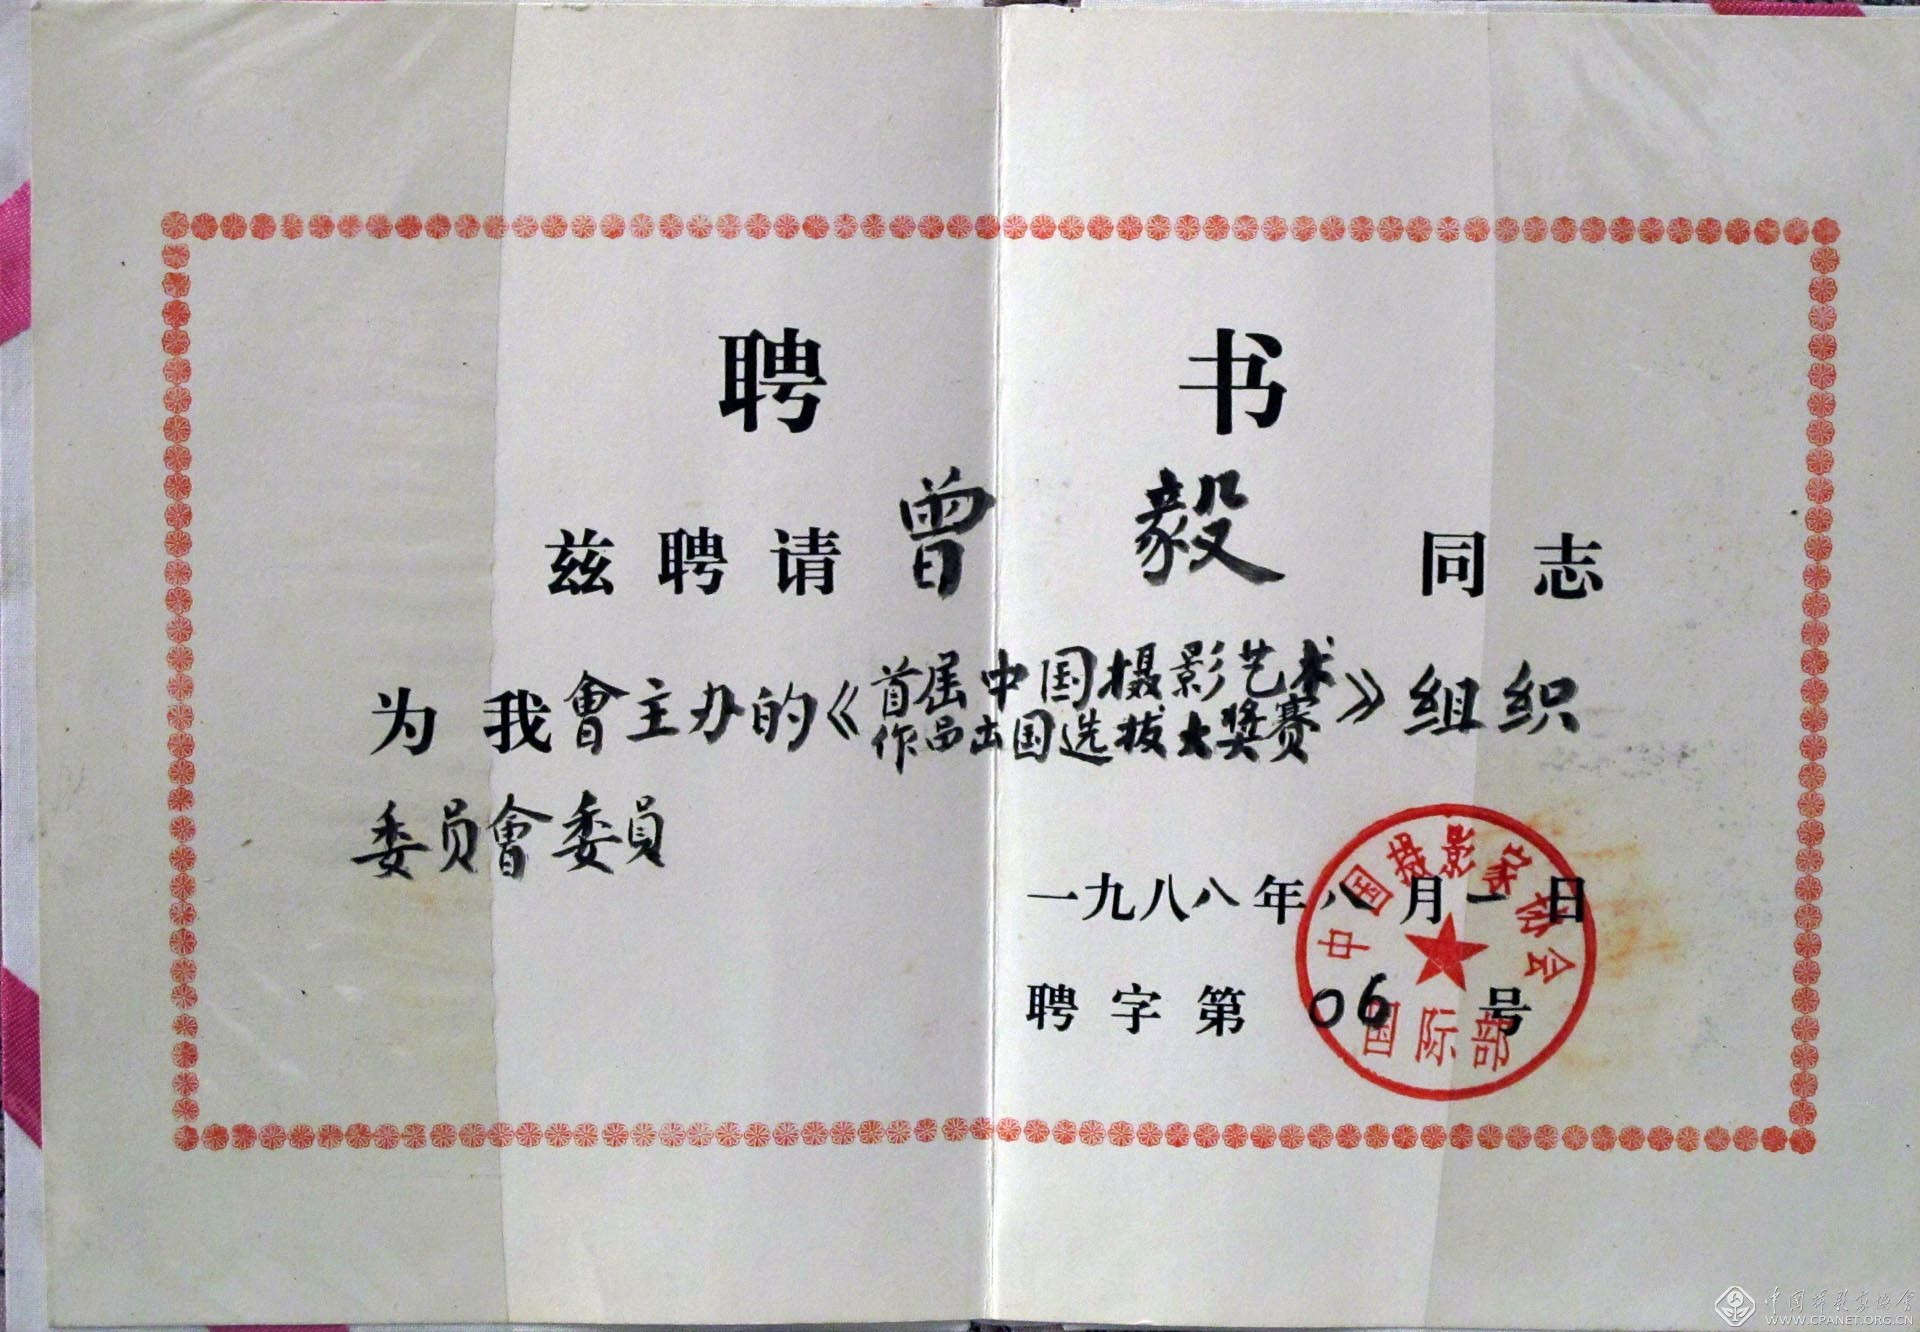 聘 书
兹聘请 曾毅 同志
为我會主办的《首届中国摄影艺术
作品出国选拔大奖赛》组织
委员會委員
一九八八年八月一日
聘字第 06 号
中国摄影家协会
国际部
中国摄影家协會
WWW.CPANET.ORG.CN